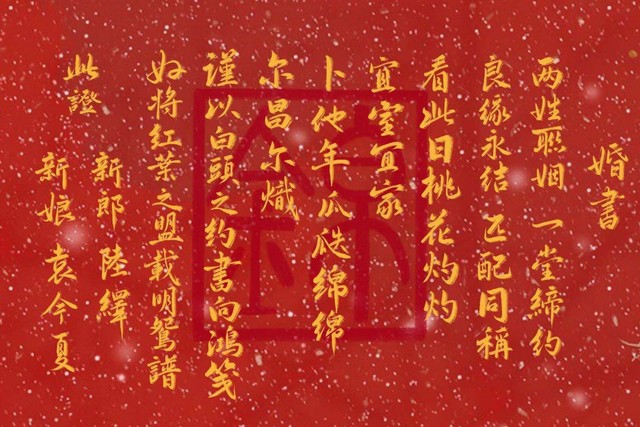 婚書
两姓聯姻 一堂締约
良緣永结 匹配同稱
看此日桃花灼灼
宜室宜家
卜他年瓜瓞綿綿
尔昌尔熾
謹以白頭之约書向鴻笺
好將紅葉之盟載明鴛譜
此證
新郎 陸繹
新娘 袁今夏
錦